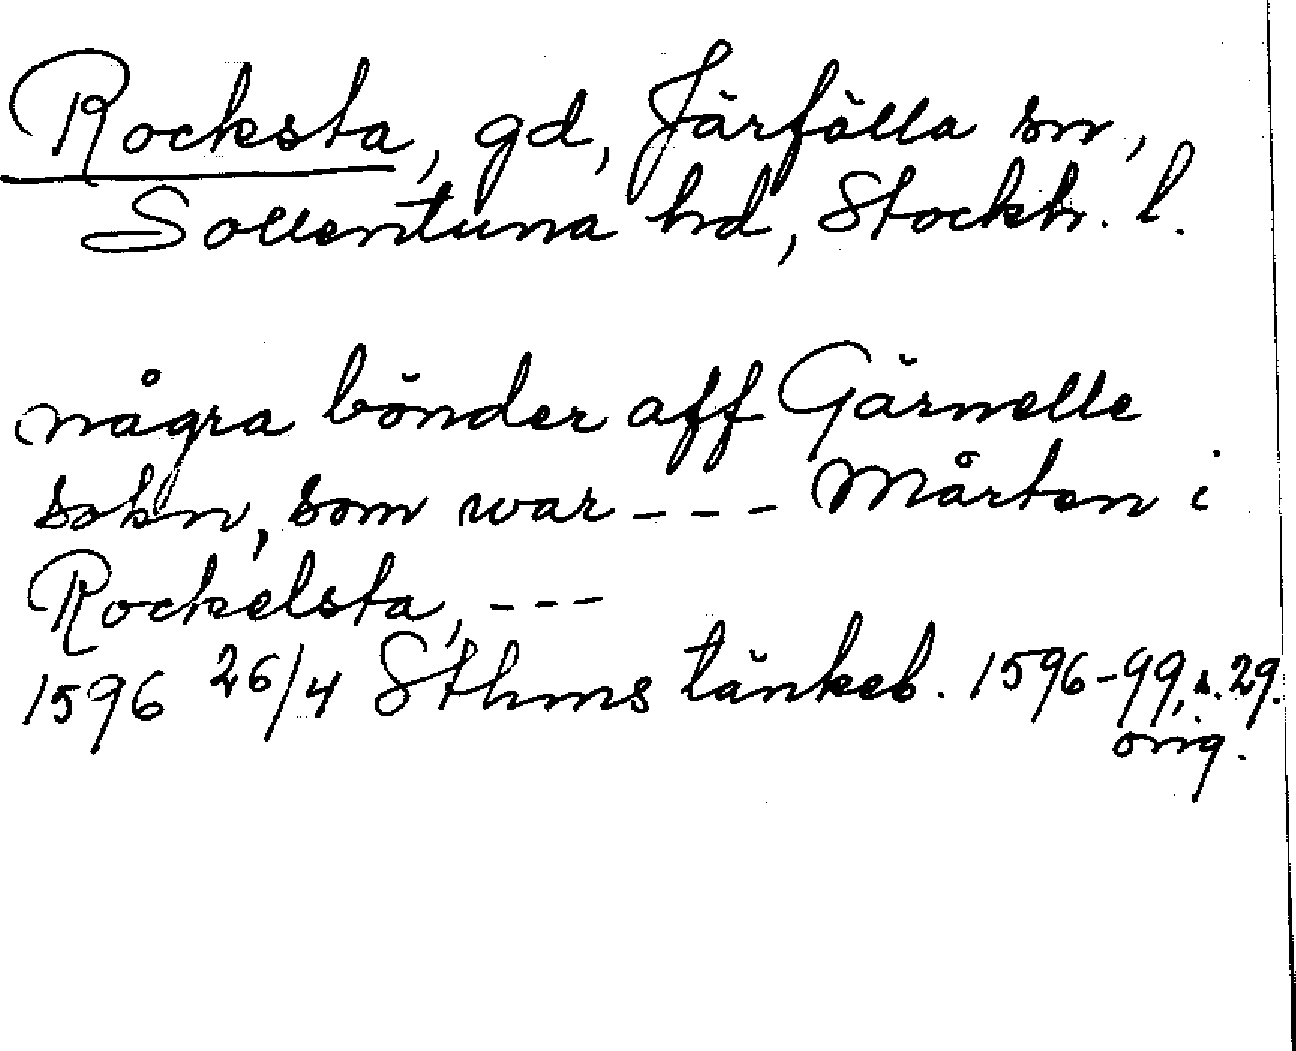 Rocksta, gd, Järfälla sn,
Sollentuna hd, Stockh. l.
några bönder aff Gärnelle
sokn, som war - - - Mårten i
Rockelsta, - - -
1596 26/4 Sthms tänkeb. 1596-99, s. 29.
orig.